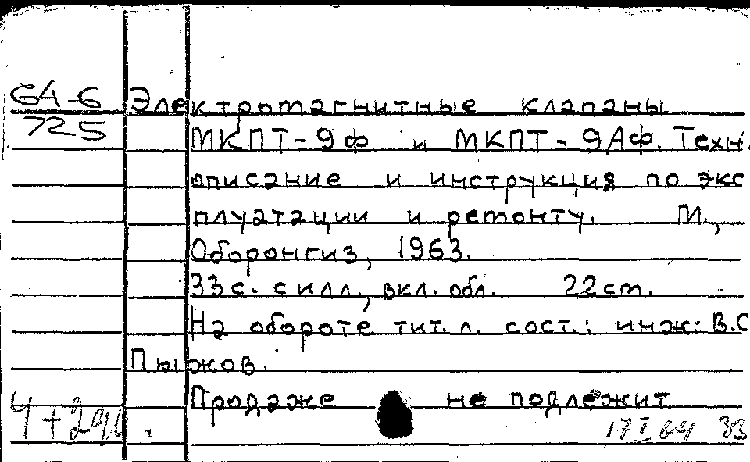 6А-6 Электромагнитные клапаны
725 МКПТ-9ф и МКПТ-9Аф. Техн.
описание и инструкция по экс
плуатации и ремонту. М.,
Оборонгиз, 1963.
33 с. с илл., вкл. обл. 22 cm.
На обороте тит. л. сост.: инж: В.С
Пыжов.
Продаже не подлежит
17 I 64 33